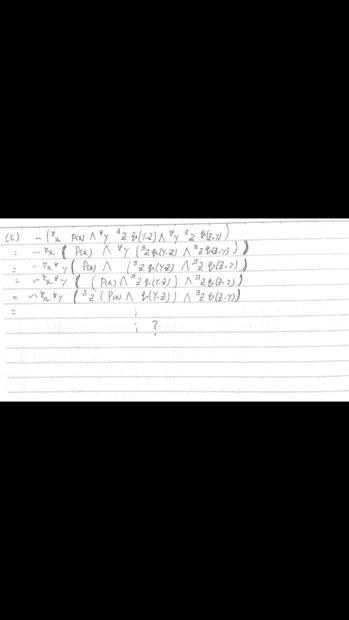 (c) ~(∀x P(x) ∧ ∀y ∃z q(y,z) ∧ ∀y ∃z q(z,y))
= ~∀x ( P(x) ∧ ∀y (∃z q(y,z) ∧ ∃z q(z,y)))
= ~∀x∀y ( P(x) ∧ (∃z q(y,z) ∧ ∃z q(z,y))
= ~∀x∀y ( (P(x) ∧ ∃z q(y,z)) ∧ ∃z q(z,y))
= ~∀x∀y ( ∃z (P(x) ∧ q(y,z)) ∧ ∃z q(z,y))
= :
: ?